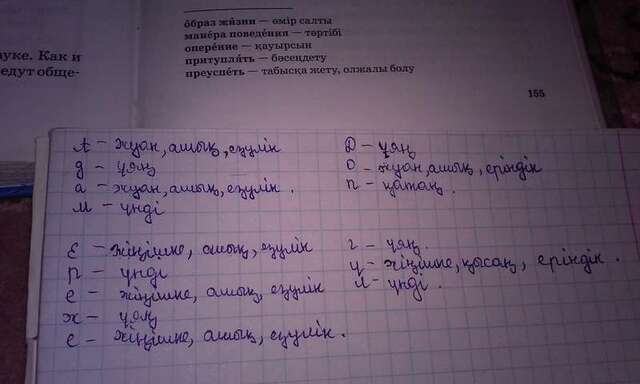 уке. Как и
едут обще-
о́браз жи́зни — өмір салты
мане́ра поведе́ния — тәртібі
опере́ние — қауырсын
притупля́ть — бәсеңдету
преуспе́ть — табысқа жету, олжалы болу
155
А – жуан, ашық, езулік
д – ұяң
а – жуан, ашық, езулік.
м – үнді
Е – жіңішке, ашық, езулік
р – үнді
е – жіңішке, ашық, езулік
ж – ұяң
е – жіңішке, ашық, езулік.
Д – ұяң
О – жуан, ашық, еріндік
п – қатаң.
г – ұяң.
ү – жіңішке, қысаң, еріндік.
л – үнді.